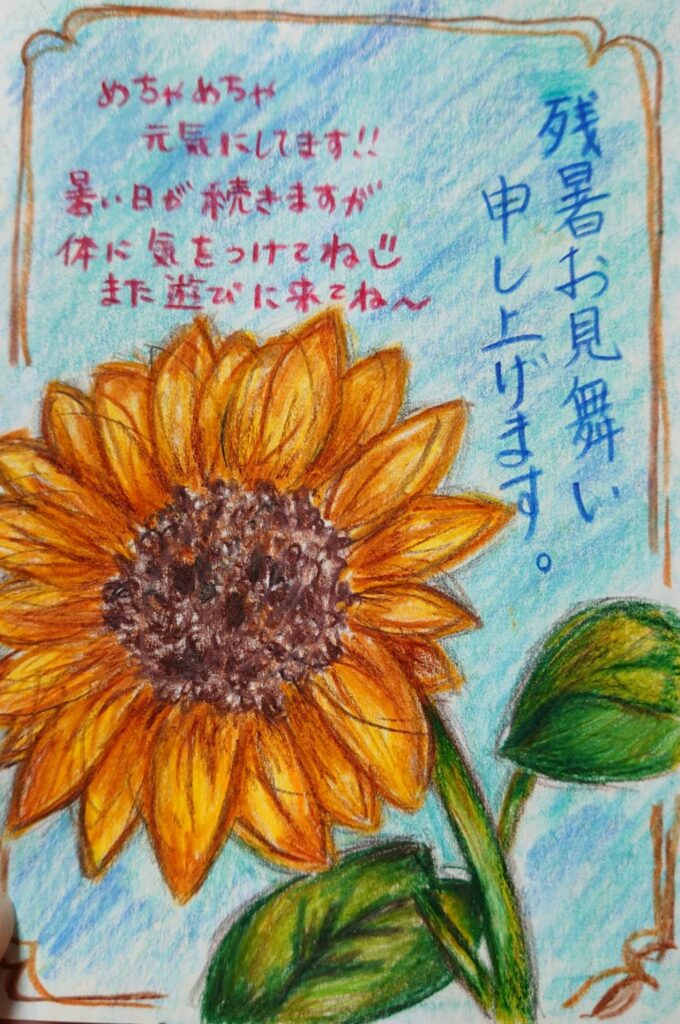 残暑お見舞い
申し上げます。
めちゃめちゃ
元気にしてます!!
暑い日が続きますが
体に気をつけてね
また遊びに来てね〜